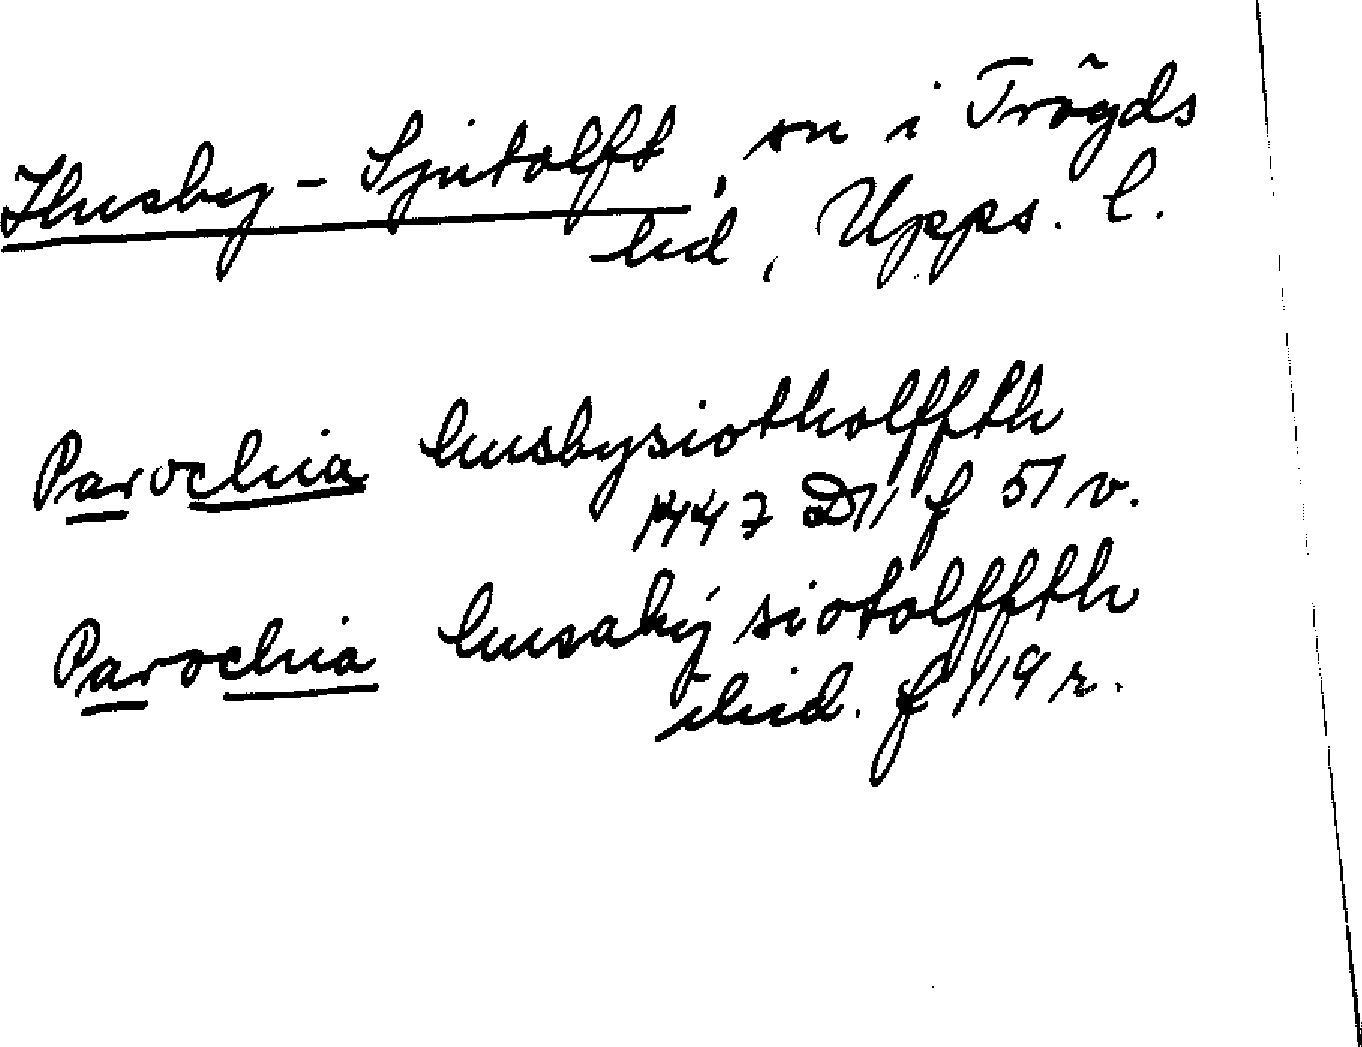 Husby-Sjutolft, sn i Trögds
hd, Upps. l.
Parochia husbysiotholffth
1447 D11 f 51 v.
Parochia husabý siotolffth
ibid. f 119 r.